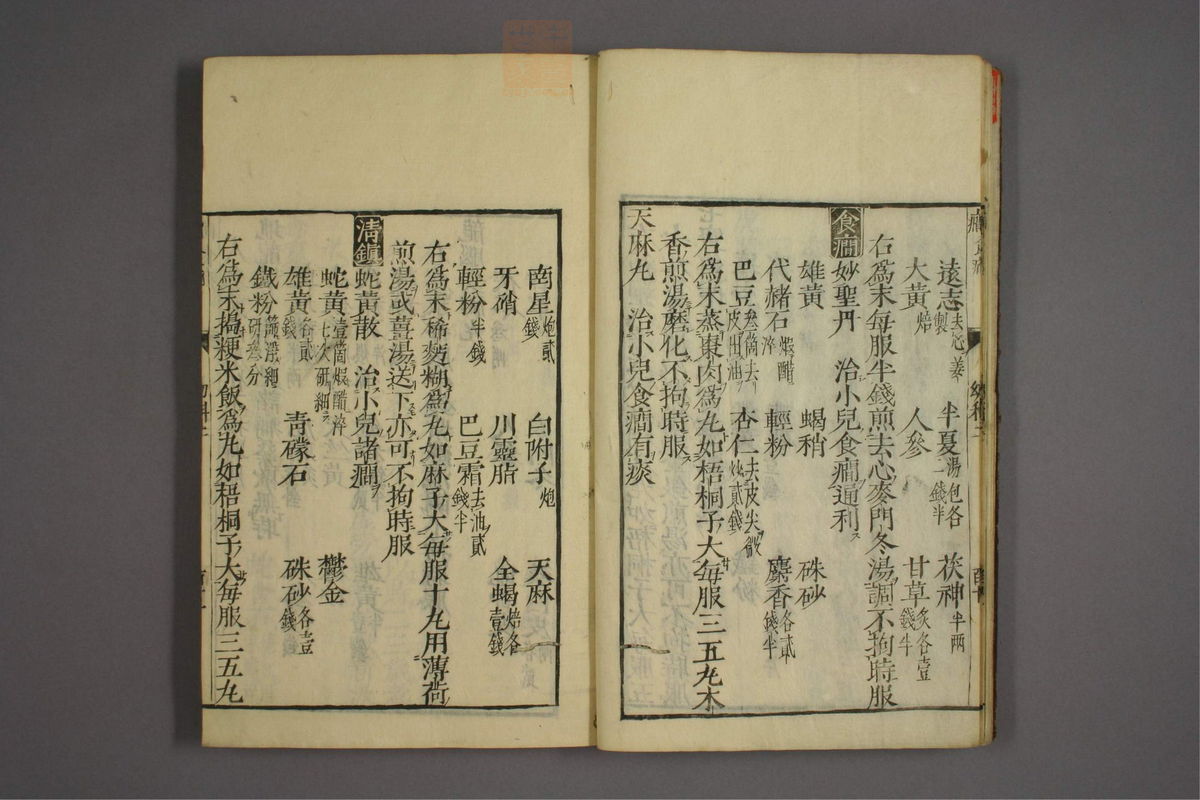 遠志去心姜製 半夏湯包各二錢半 茯神半兩
大黃焙 人參 甘草炙各壹錢半
右爲末每服半錢煎去心麥門冬湯調不拘時服
食癇 妙聖丹 治小兒食癇通利
雄黃 蝎稍 硃砂
代赭石煅醋淬 輕粉 麝香各貳錢半
巴豆叁箇去皮出油 杏仁去皮尖微炒貳錢
右爲末蒸棗肉爲丸如梧桐子大每服三五丸木
香煎湯磨化不拘時服
天麻丸 治小兒食癇有痰
南星炮貳錢 白附子炮 天麻
牙硝 川靈脂 全蝎焙各壹錢
輕粉半錢 巴豆霜去油貳錢半
右爲末稀麪糊爲丸如麻子大每服十丸用薄荷
煎湯或薑湯送下亦可不拘時服
清鎮 蛇黃散 治小兒諸癇
蛇黃壹箇煅醋淬七次研細 鬱金
雄黃各貳錢 青礞石 硃砂各壹錢
鐵粉研叁分
右爲末搗粳米飯爲丸如梧桐子大每服三五丸